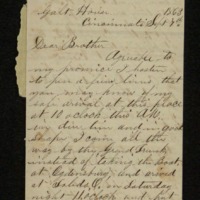 Galt House 1863
Cincinnati Sept 8th
Dear Brother
Agreeable to
my promise I hasten
to pen a few lines that
you may know of my
safe arrival at this place
at 10 o clock this A.M.
in due time and in good
I came all the
way by the Grand Trunk
instead of taking the boat
at Ogdensburg and arrived
at Toledo, O. on Saturday
night 11 o clock and